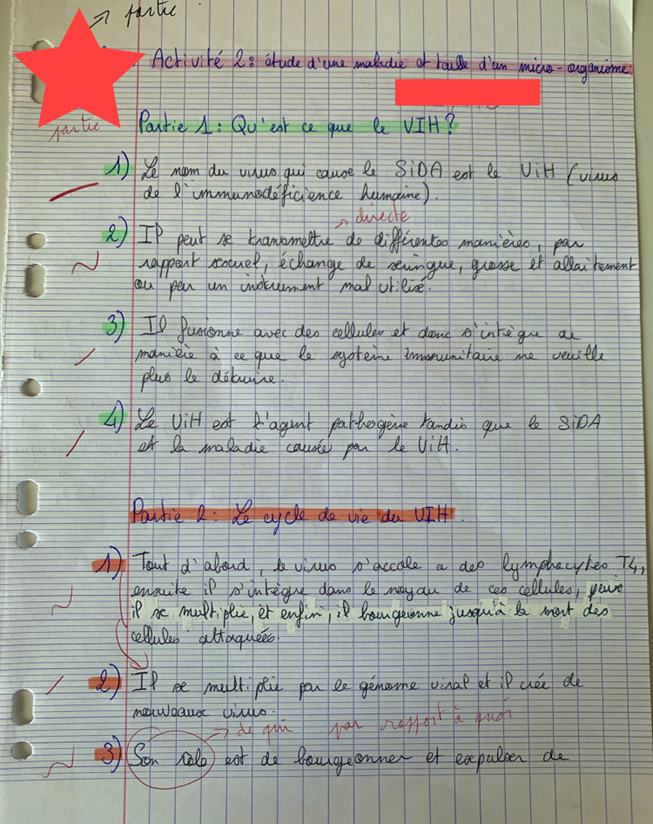 → partie
Activité 2 : étude d'une maladie et taille d'un micro-organisme.
partie
Partie 1 : Qu'est ce que le VIH ?
1) Le nom du virus qui cause le SiDA est le ViH (virus
de l'immunodéficience humaine).
→ directe
2) Il peut se transmettre de différentes manières, par
rapport sexuel, échange de seringue, grosse et allaitement
ou par un instrument mal utilisé.
3) Il fusionne avec des cellules et donc s'intègre de
manière à ce que le système immunitaire ne veuille
plus le détruire.
4) Le ViH est l'agent pathogène tandis que le SiDA
est la maladie causée par le ViH.
Partie 2 : Le cycle de vie du VIH.
1) Tout d'abord, le virus s'accole a des lymphocytes T4,
ensuite il s'intègre dans le noyau de ces cellules, puis
il se multiplie, et enfin, il bourgeonne jusqu'à la mort des
cellules attaquées.
2) Il se multiplie par le génome viral et il crée de
nouveaux virus.
→ de qui par rapport à quoi
3) Son rôle est de bourgeonner et expulser de